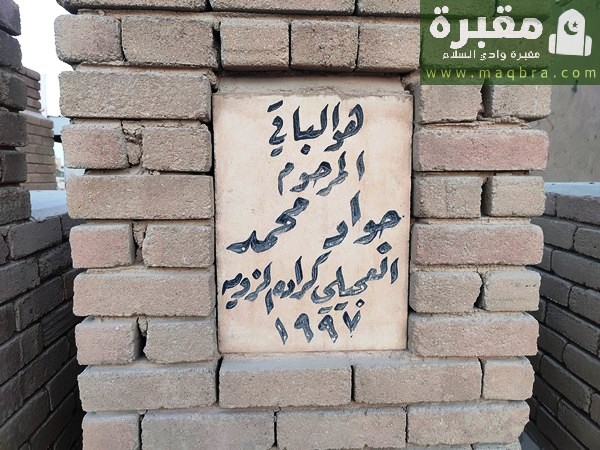 مقبرة
مقبرة وادي السلام
www.maqbra.com
هو الباقي
المرحوم
جواد محمد
العجيلي كرادة
١٩٩٧